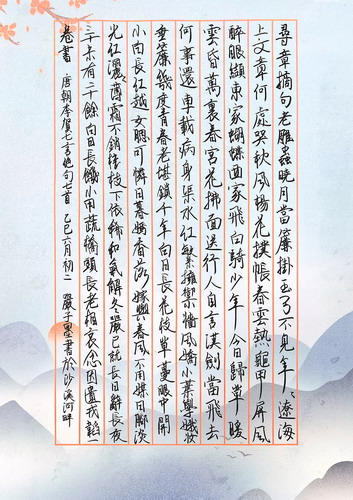 尋章摘句老雕蟲曉月當簾掛玉弓不見年〻遼海
上文章何處哭秋風楊花撲帳春雲熱龜甲屏風
醉眼纈東家蝴蝶西家飛白騎少年今日歸草暖
雲昏萬裏春宮花拂面送行人自言漢劍當飛去
何事還車載病身渠水紅繁擁禦牆風嬌小葉學娥妝
垂簾幾度青春老堪鎖千年白日長花枝草蔓眼中開
小白長紅越女腮可憐日暮嫣香落嫁與春風不用媒日腳淡
光紅灑〻薄霜不銷桂枝下依稀和氣解冬嚴已就長日辭長夜
三十未有二十餘白日長饑小甲蔬橋頭長老相哀念因遺戎韜一
卷書 唐朝李賀七言絕句七首 乙巳六月初二 嚴子墨書於沙溪河畔